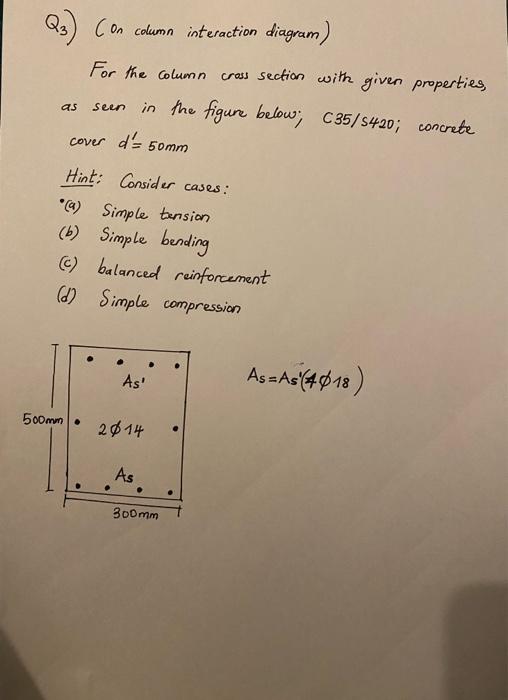 Q3) (On column interaction diagram)
For the column cross section with given properties,
as seen in the figure below; C35/S420; concrete
cover d'= 50mm
Hint: Consider cases:
(a) Simple tension
(b) Simple bending
(c) balanced reinforcement
(d) Simple compression
As'
As=As'(4ϕ18)
500mm
2ϕ14
As
300mm